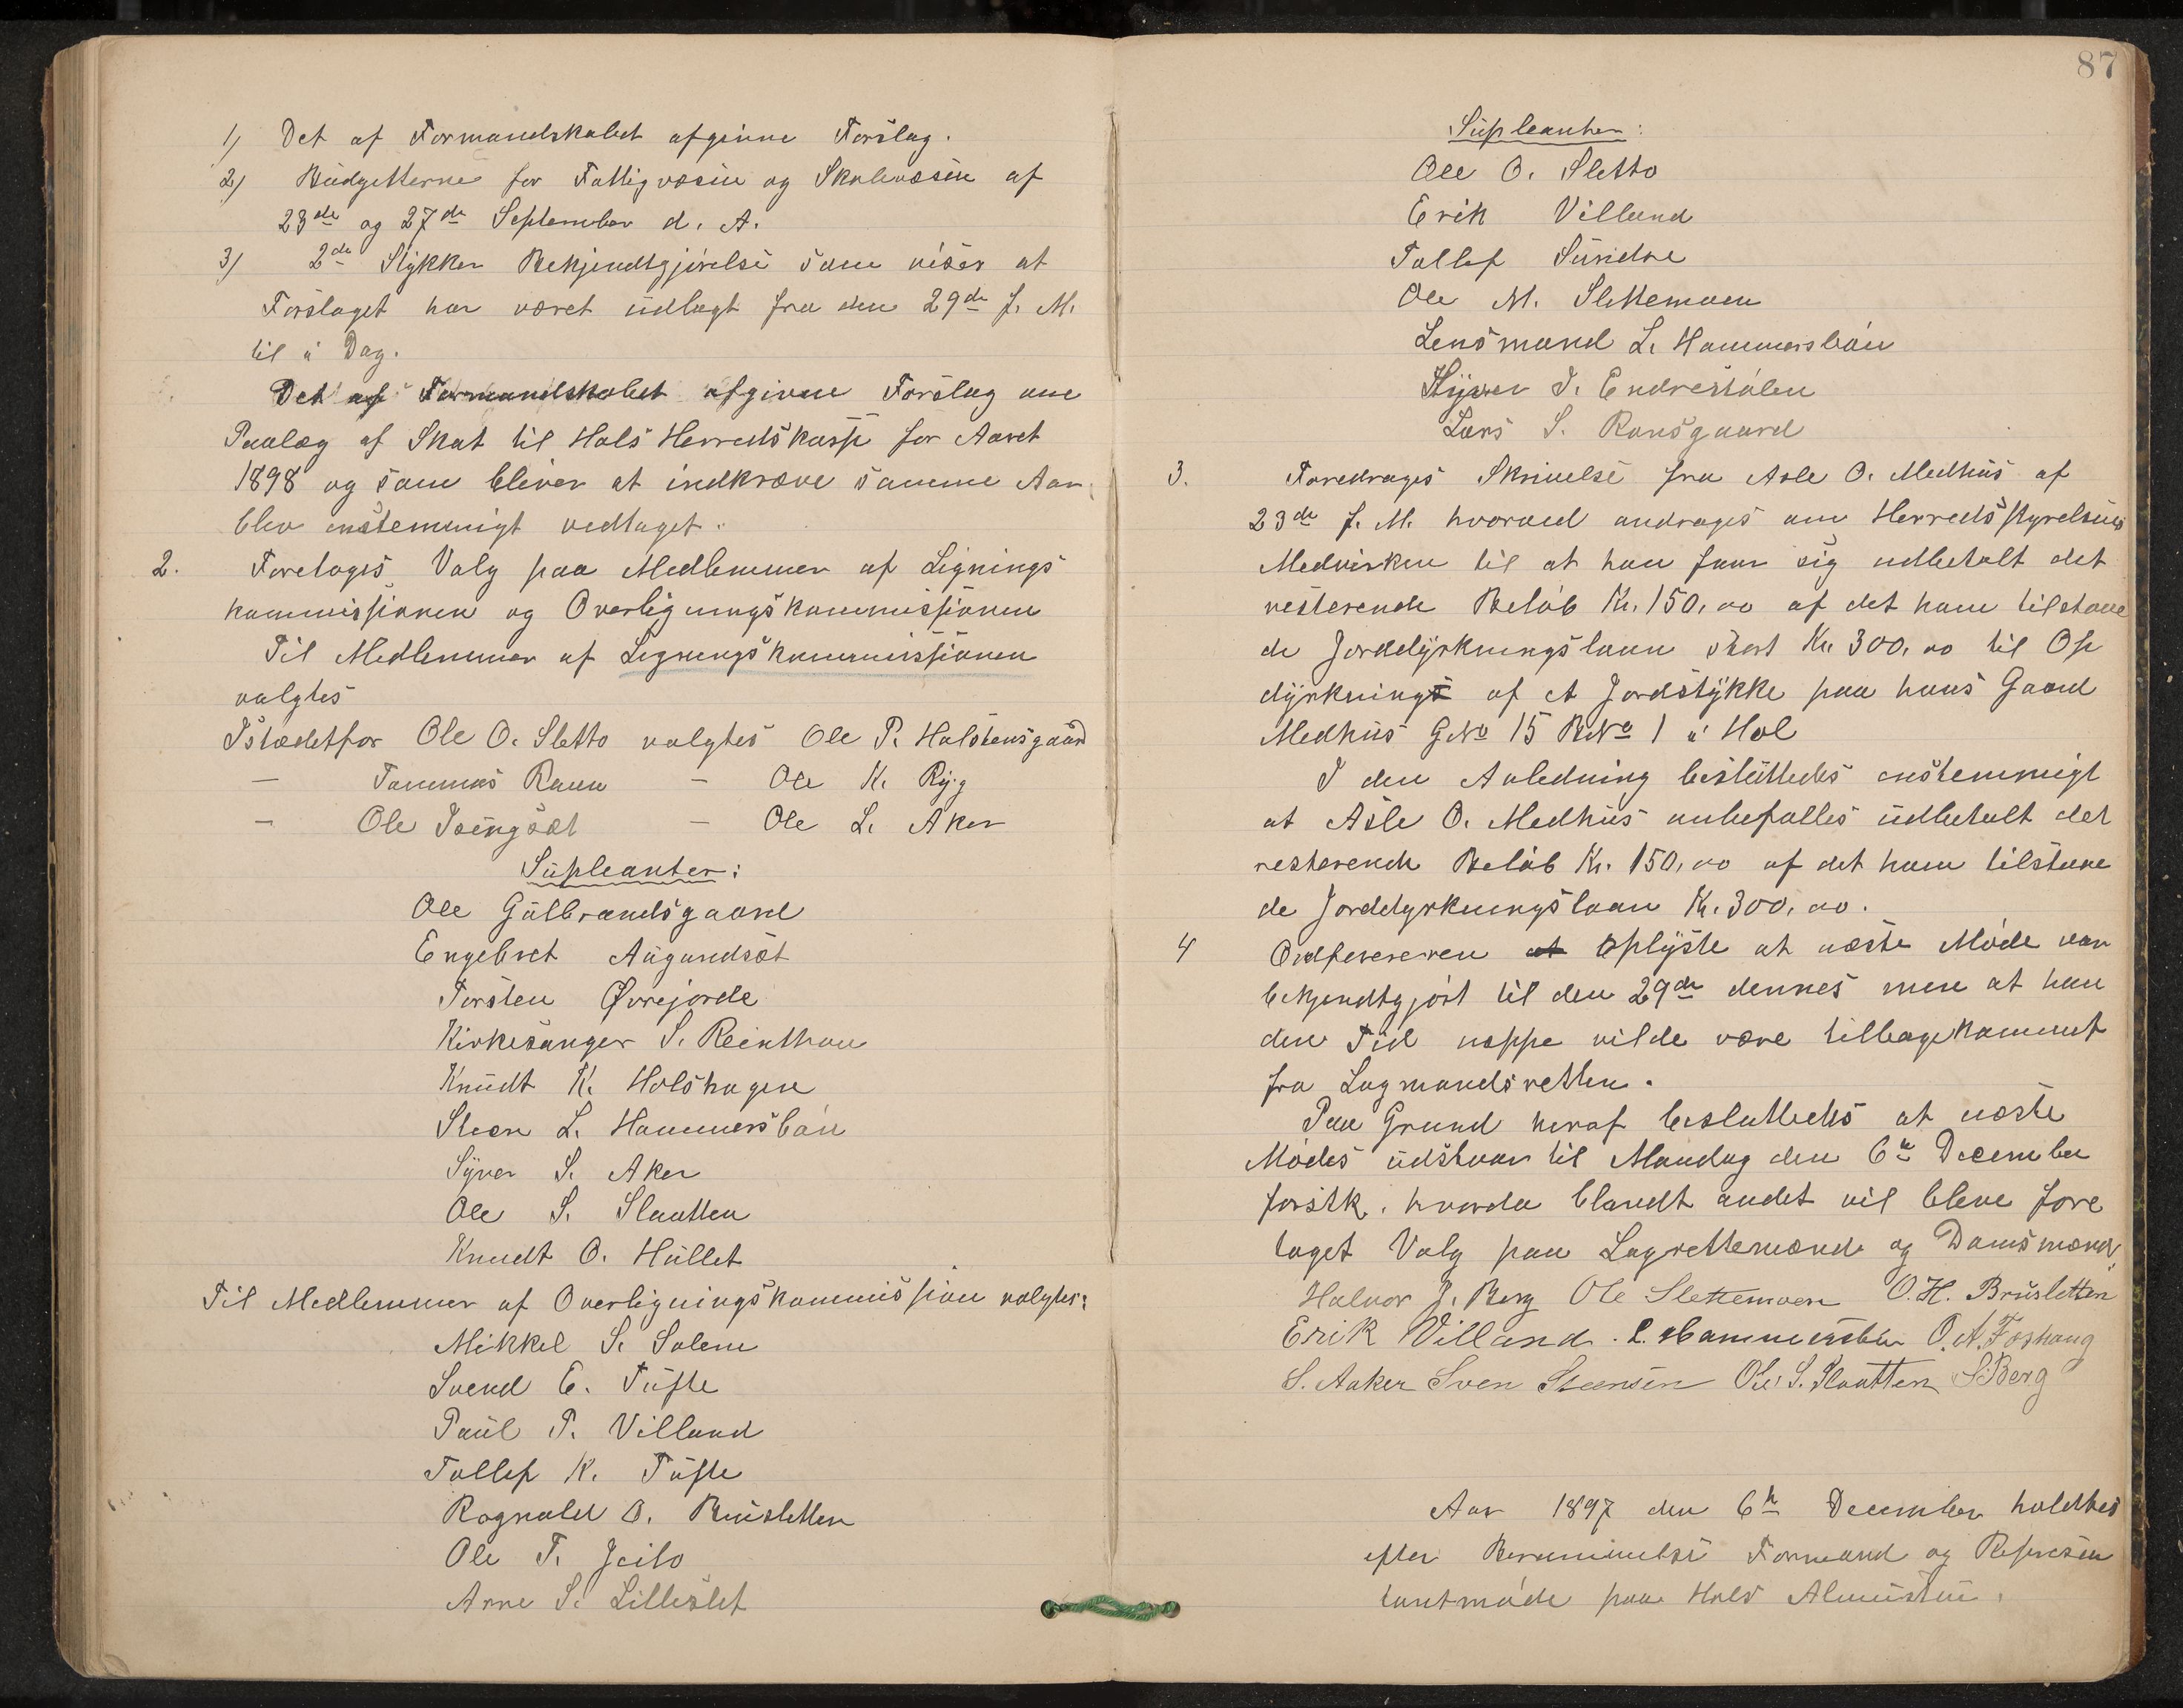 1) Det af Formandskabet afgivne Forslag.
2) Budgetterne for Fattigvæsen og Skolevæsen af
23de og 27de September d. A.
3) 2de Stykker Bekjendtgjørelse som viser at
Forslaget har været udlagt fra den 29de f. M.
til i Dag.
Det af Formandskabet afgivne Forslag om
Paalæg af Skat til Hols Herredskasse for Aaret
1898 og som bliver at indkræve samme Aar
blev enstemmigt vedtaget.
2. Foretages Valg paa Medlemmer af Lignings
kommissionen og Overligningskommissionen
Til Medlemmer af Ligningskommissionen
valgtes
Istædetfor Ole O. Sletto valgtes Ole P. Halstensgaard
— Tommas Raun — Ole K. Ryg
— Ole Tsingsæt — Ole L. Aker
Supleanter:
Ole Gulbrandsgaard
Engebret Augundsæt
Torsten Øvrejorde
Kirkesanger S. Reinthon
Knudt K. Holshagen
Steen L. Hammersbøen
Syver S. Aker
Ole S. Slaatten
Knudt O. Hullet
Til Medlemmer af Overligningskommission valgtes:
Mikkel S. Solem
Svend E. Tufte
Paul P. Villand
Tollef K. Tufte
Rognald O. Brusletten
Ole T. Jeilo
Arne S. Lilleslet
87
Supleanter:
Ole O. Sletto
Erik Villand
Tollef Sundre
Ole M. Slettemoen
Lensmand L. Hammersbøen
Syver T. Endrestølen
Lars S. Ransgaard
3. Foredrages Skrivelse fra Asle O. Medhus af
23de f. M. hvorved andrages om Herredsstyrelsens
Medvirken til at han faar sig udbetalt det
resterende Beløb Kr. 150,00 af det ham tilstaae
de Jorddyrkningslaan stort Kr. 300,00 til Op
dyrkning af et Jordstykke paa hans Gaard
Medhus GNo 15 BNo 1 i Hol
I den Anledning besluttedes enstemmigt
at Asle O. Medhus anbefalles udbetalt det
resterende Beløb Kr. 150,00 af det ham tilstaae
de Jorddyrkningslaan Kr. 300,00.
4 Ordføreren at oplyste at næste Møde var
bekjendtgjort til den 29de dennes men at han
den Tid neppe vilde være tilbagekommet
fra Lagmandsretten.
Paa Grund heraf besluttedes at næste
Mødes udstaar til Mandag den 6te December
førstk. hvorda blandt andet vil bleve fore
taget Valg paa Lagrettemænd og Domsmænd.
Halvor J. Berg Ole Slettemoen O. H. Brusletten
Erik Villand. L. Hammersbøen O. A. Foshaug
S. Aaker Sven Steensen Ole S. Slaatten S Berg
Aar 1897 den 6te December holdtes
efter Berammelse Formand og Represen
tantmøde paa Hols Almustue.